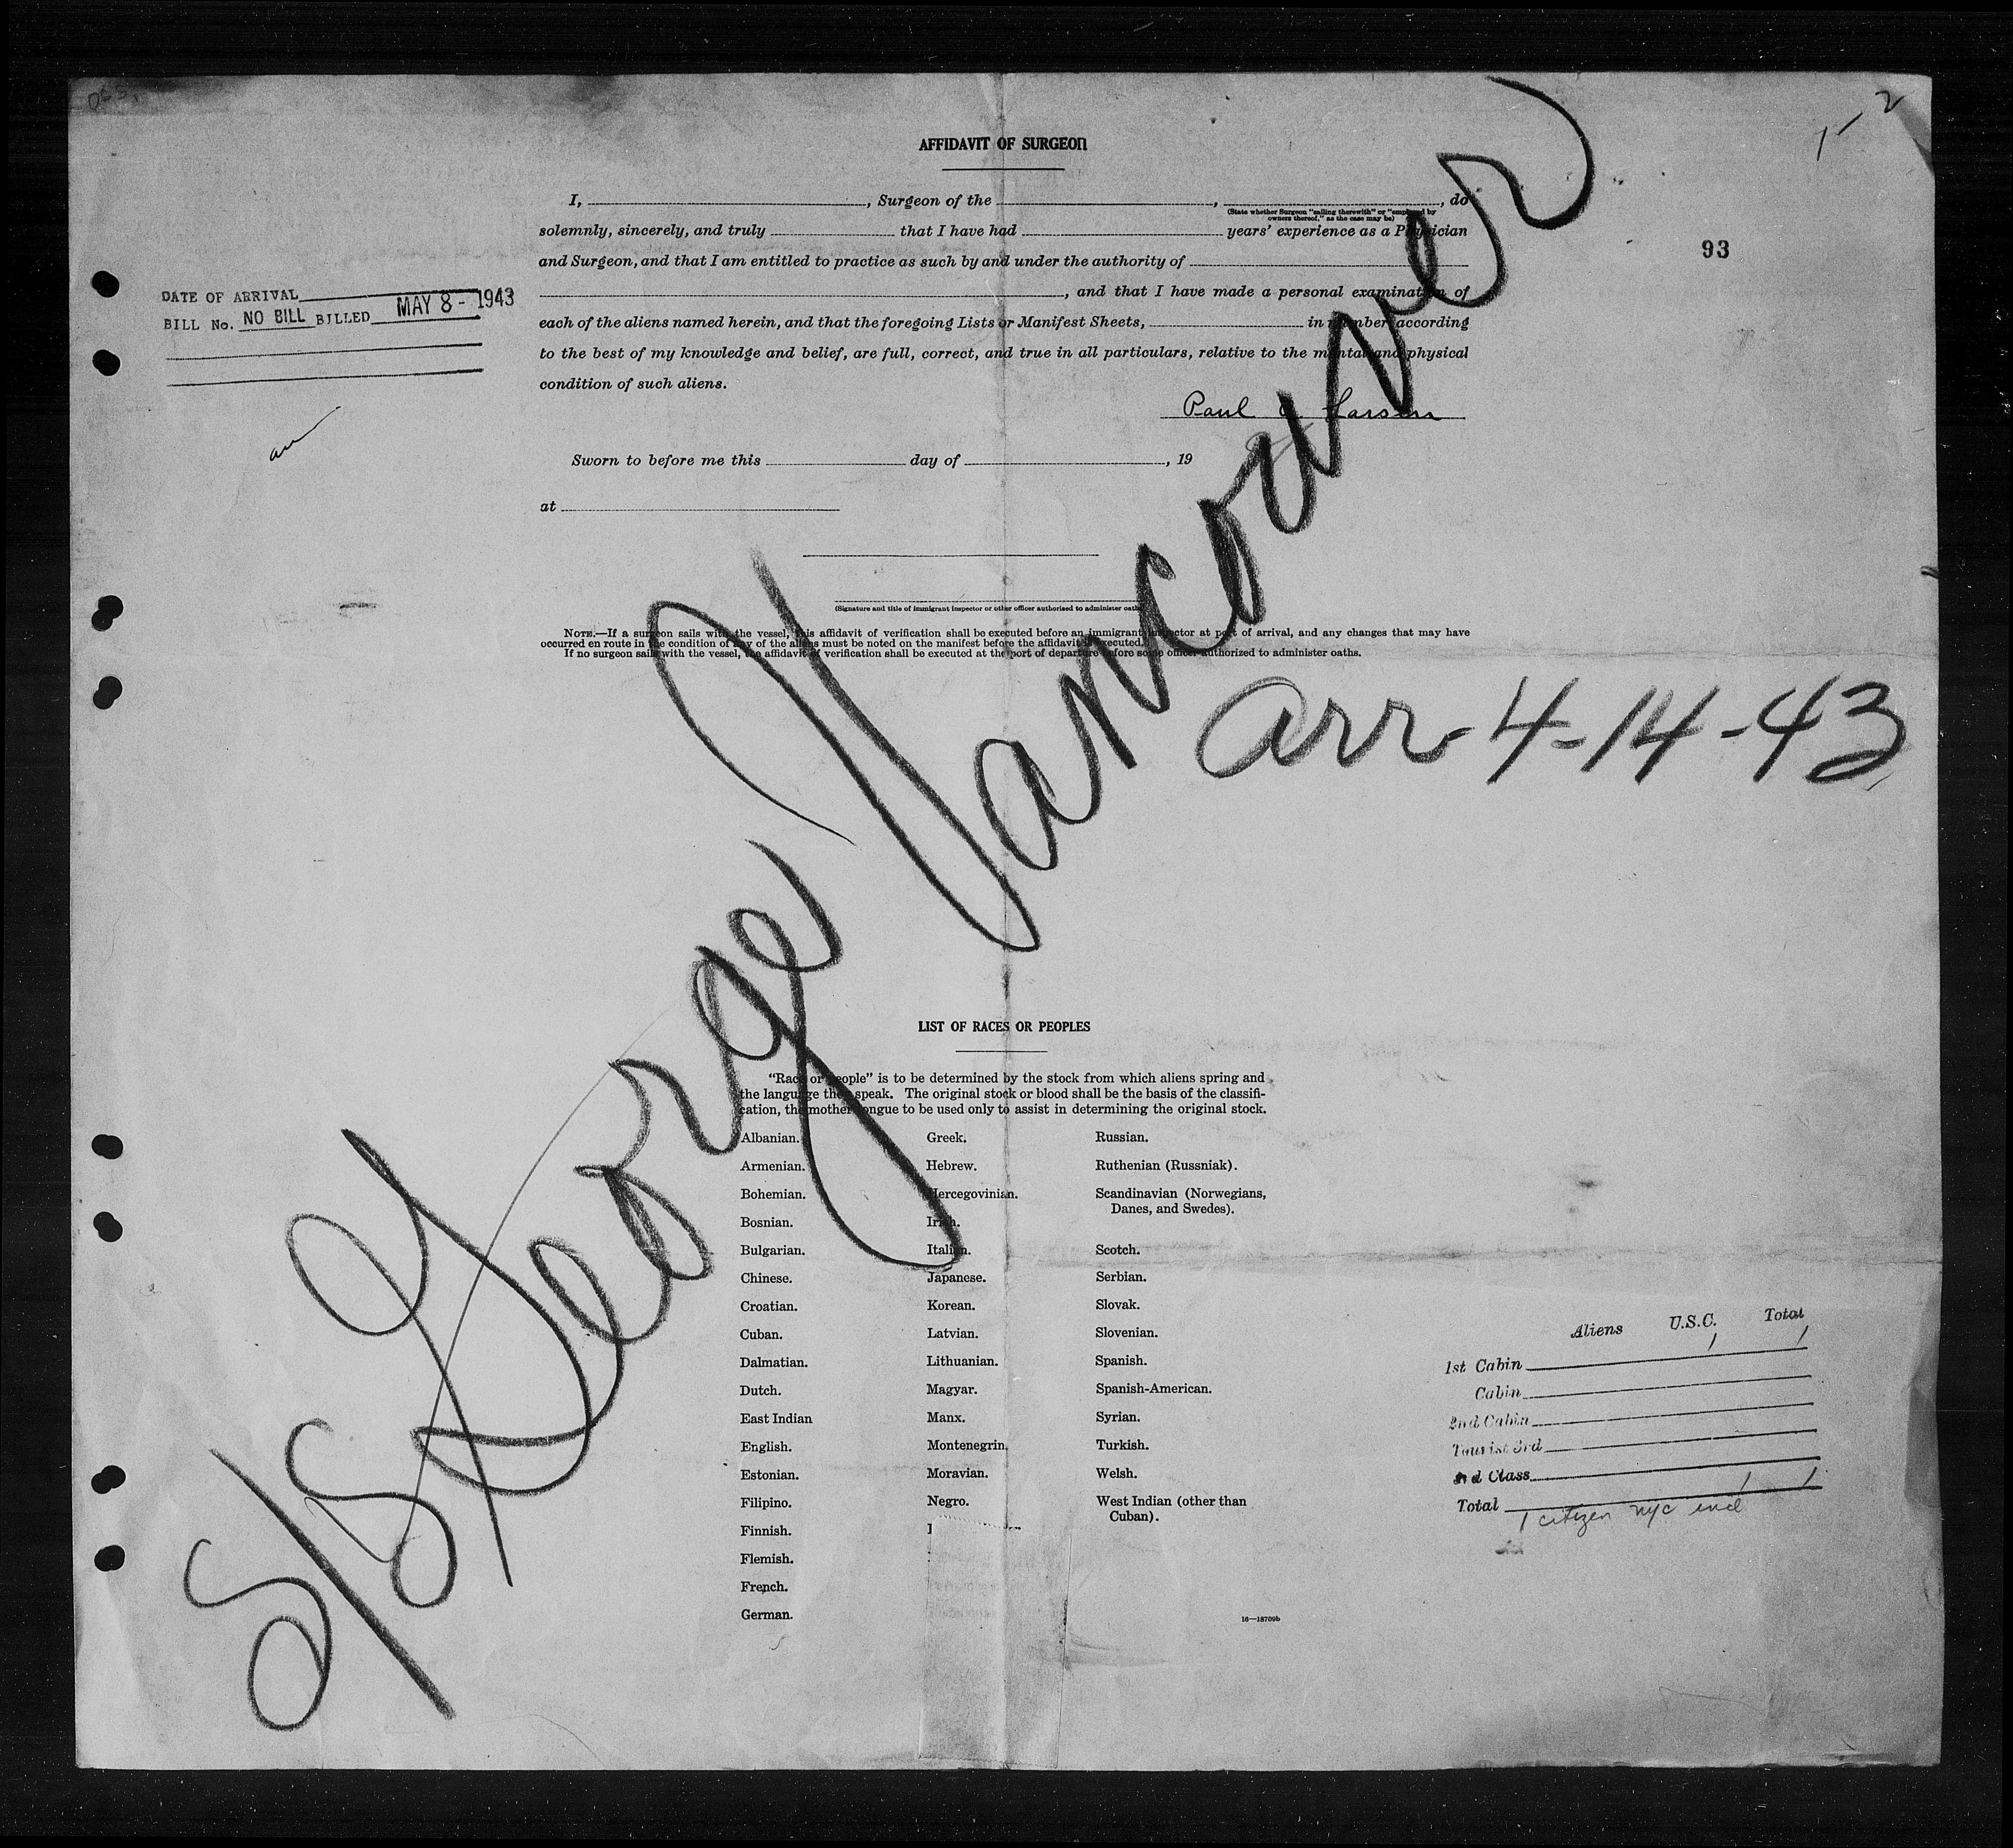 1-2
AFFIDAVIT OF SURGEON
I, , Surgeon of the , , do
(State whether Surgeon "sailing therewith" or "employed by
owners thereof," as the case may be)
solemnly, sincerely, and truly that I have had years' experience as a Physician
and Surgeon, and that I am entitled to practice as such by and under the authority of
93
, and that I have made a personal examination of
DATE OF ARRIVAL
BILL No. NO BILL BILLED MAY 8 - 1943
each of the aliens named herein, and that the foregoing Lists or Manifest Sheets, in number according
to the best of my knowledge and belief, are full, correct, and true in all particulars, relative to the mental and physical
condition of such aliens.
Paul Larsen
Sworn to before me this day of , 19
at
(Signature and title of immigrant inspector or other officer authorized to administer oath)
NOTE.—If a surgeon sails with the vessel, this affidavit of verification shall be executed before an immigrant inspector at port of arrival, and any changes that may have
occurred en route in the condition of any of the aliens must be noted on the manifest before the affidavit is executed.
If no surgeon sails with the vessel, the affidavit of verification shall be executed at the port of departure before some officer authorized to administer oaths.
S/S George Vancouver
arr-4-14-43
LIST OF RACES OR PEOPLES
"Race or people" is to be determined by the stock from which aliens spring and
the language they speak. The original stock or blood shall be the basis of the classifi-
cation, the mother tongue to be used only to assist in determining the original stock.
Albanian.
Armenian.
Bohemian.
Bosnian.
Bulgarian.
Chinese.
Croatian.
Cuban.
Dalmatian.
Dutch.
East Indian
English.
Estonian.
Filipino.
Finnish.
Flemish.
French.
German.
Greek.
Hebrew.
Hercegovinian.
Irish.
Italian.
Japanese.
Korean.
Latvian.
Lithuanian.
Magyar.
Manx.
Montenegrin.
Moravian.
Negro.
Russian.
Ruthenian (Russniak).
Scandinavian (Norwegians,
Danes, and Swedes).
Scotch.
Serbian.
Slovak.
Slovenian.
Spanish.
Spanish-American.
Syrian.
Turkish.
Welsh.
West Indian (other than
Cuban).
16—18709b
Aliens U.S.C. Total
1st Cabin 1 1
Cabin
2nd Cabin
Tourist 3rd
3rd Class
Total 1 1
1 citizen nyc incl